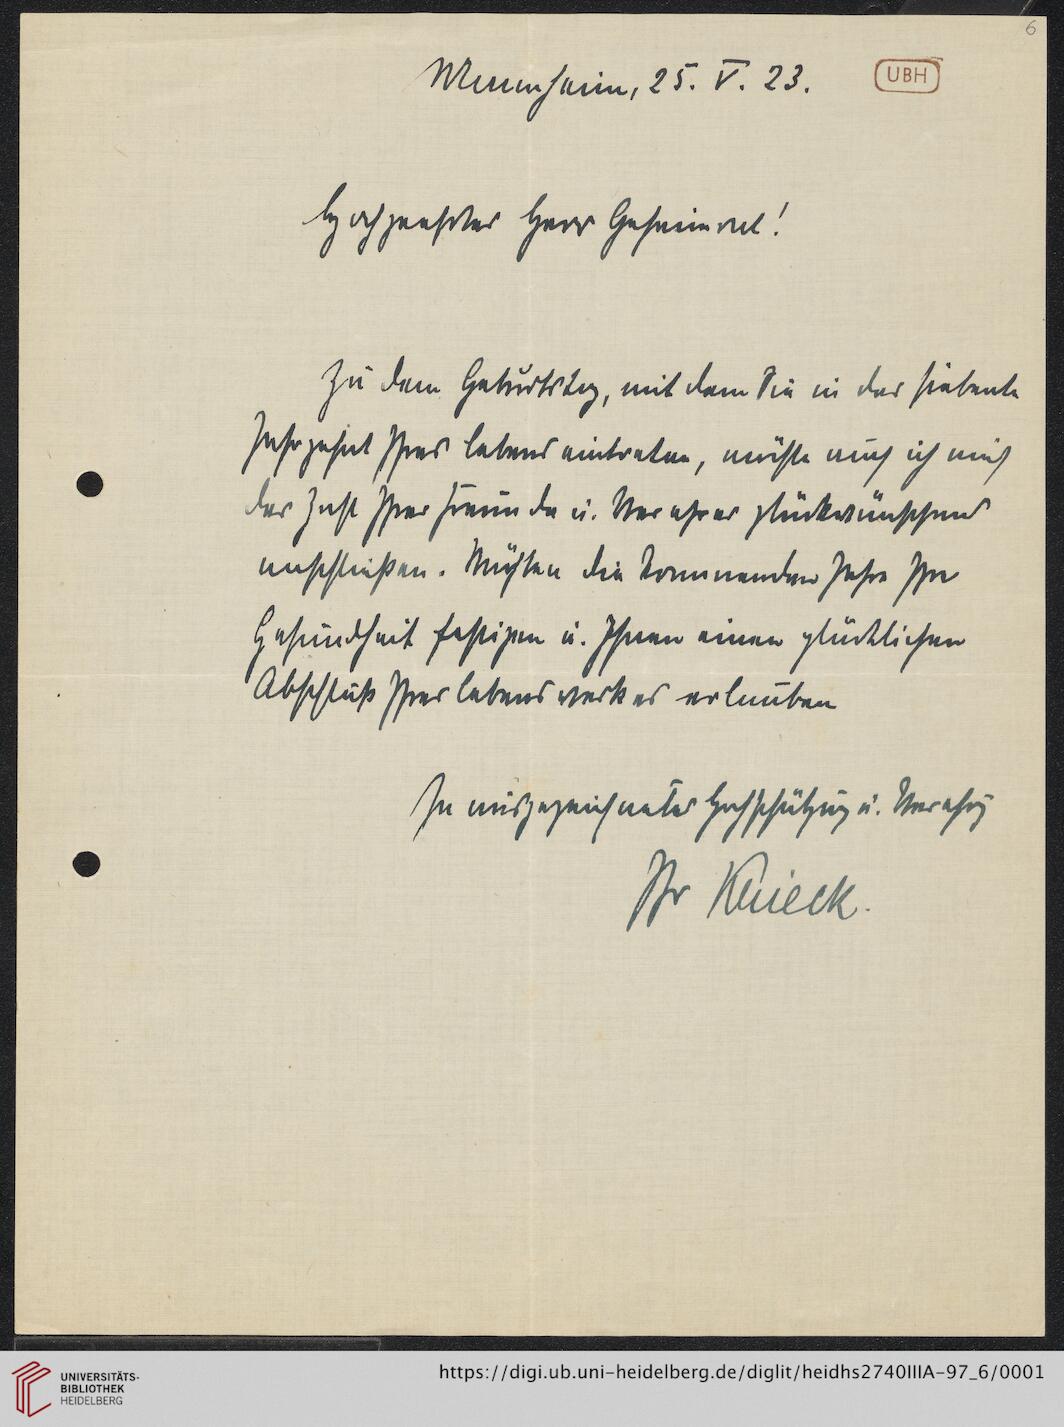 6
Mannheim, 25. V. 23.
UBH
Hochgeehrter Herr Geheimrat!
Zu dem Geburtstag, mit dem Sie in das siebente
Jahrzehnt Ihres Lebens eintreten, möchte auch ich mich
der Zahl Ihrer Freunde u. Verehrer glückwünschend
anschließen. Möchten die kommenden Jahre Ihre
Gesundheit festigen u. Ihnen einen glücklichen
Abschluß Ihres Lebenswerkes erlauben
In ausgezeichneter Hochschätzung u. Verehrung
Ihr
UNIVERSITÄTS-
BIBLIOTHEK
HEIDELBERG
https://digi.ub.uni-heidelberg.de/diglit/heidhs2740IIIA-97_6/0001